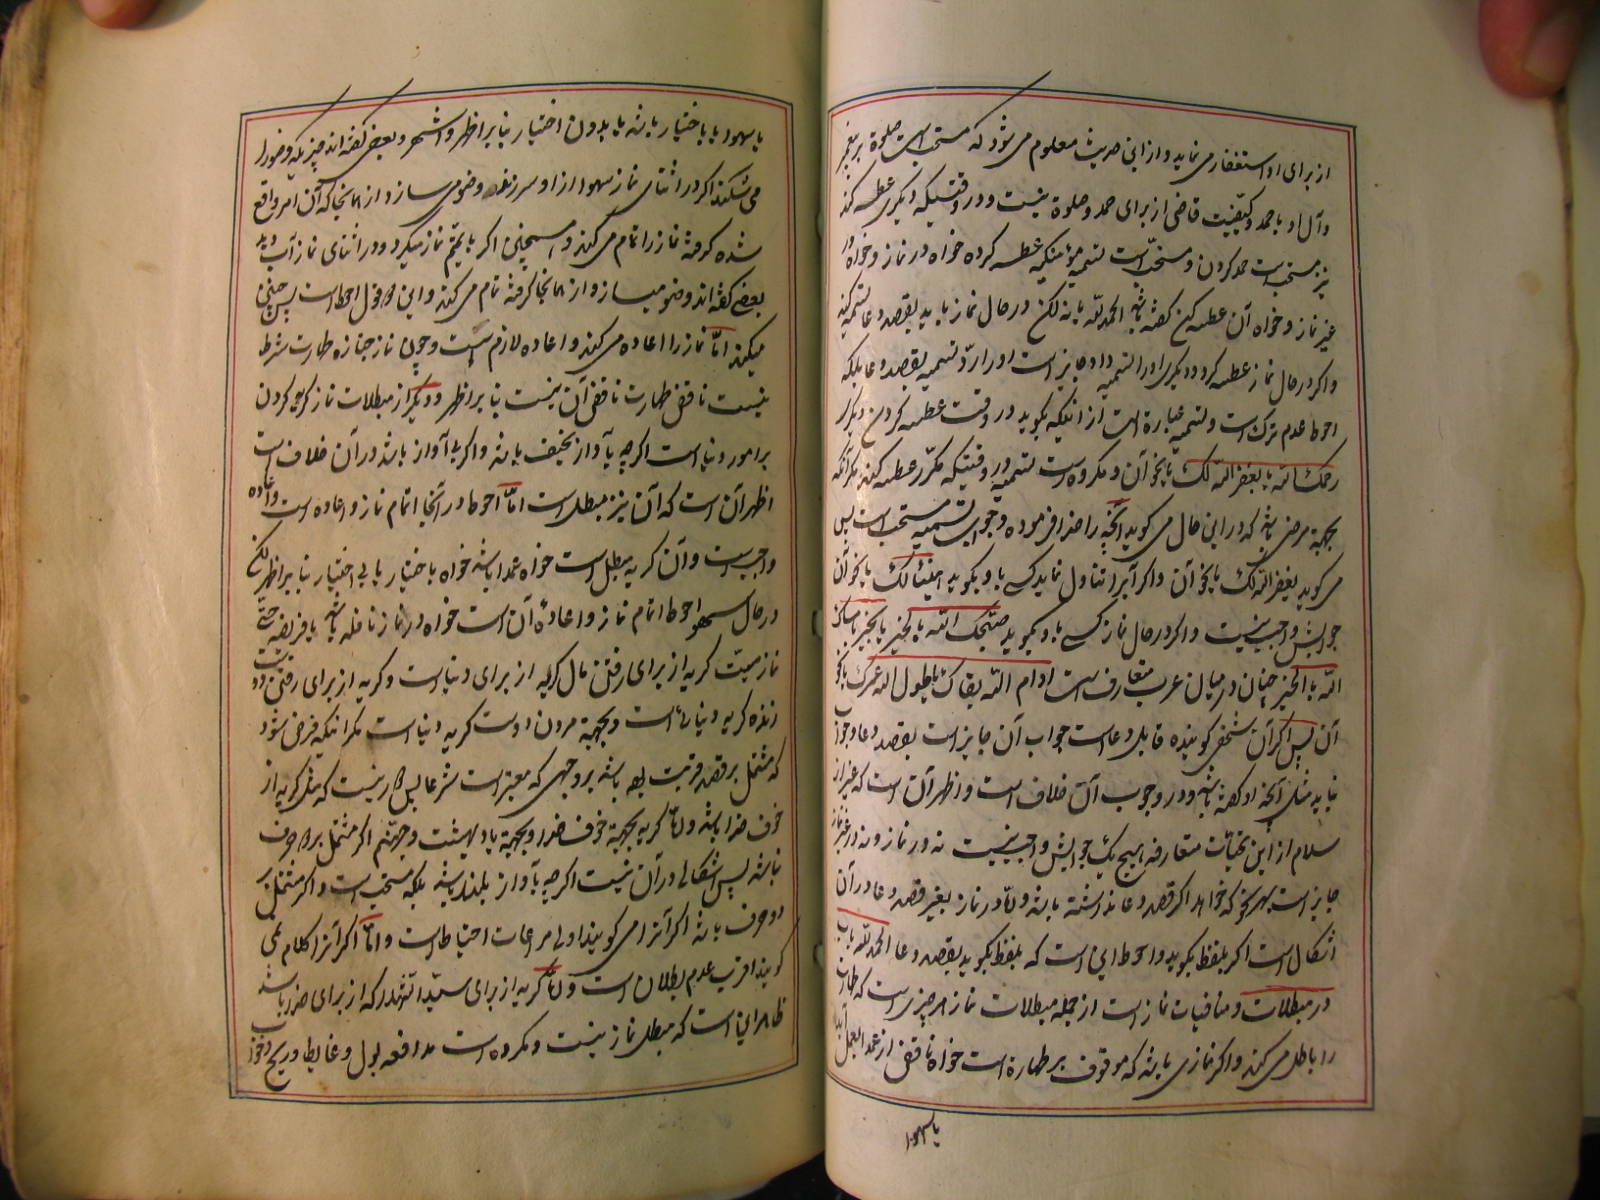 از برای او استغفار می نماید و از این حدیث معلوم می شود که مستحب است صلوة بر پیغمبر
و آل او با حمد و کیفیت قاضی از برای حمد و صلوة نیست و در وقتیکه دیگری عطسه کند
نیز مستحب است حمد کردن و مستحب است تسمیه مؤمنیکه عطسه کرده خواه در نماز و خواه در
غیر نماز و خواه آن عطسه کن گفته باشد الحمد لله یا نه لکن در حال نماز باید بقصد دعا تسمیه کند
و اگر در حال نماز عطسه کرد و دیگری او را تسمیه داد جایز است او را رد تسمیه بقصد دعا بلکه
احوط عدم ترک است و تسمیه عبارة است از اینکه بگوید در وقت عطسه کردن دیگری
رحمک الله یا یغفر الله لک یا نحو آن و مکروه است تسمیه در وقتیکه مکرر عطسه کند مگر آنکه
بجهة مرضی باشد که در این حال می گوید آنچه را حضرت فرموده و جواب تسمیه مستحب است پس
می گوید یغفر الله لک یا نحو آن و اگر آبرا تناول نماید کسی باو بگوید هنیئا لک یا نحو آن
جوابش واجب نیست و اگر در حال نماز کسی باو بگوید صبحک الله بالخیر یا بخیر یا مساک
الله بالخیر چنان در میان عرب متعارف است ادام الله بقاک یا طول الله عمرک یا نحو
آن پس اگر آن شخص گوینده قابل دعاست جواب آن جایز است بقصد دعا و جواب
نباید مثل آنچه او گفته باشد و در وجوب آن خلاف است و اظهر آن است که غیر از
سلام از این تحیات متعارفه هیچ یک جوابش واجب نیست نه در نماز و نه در غیر نماز
جایز است بهر نحو که خواهد اگر قصد دعا نداشته باشد و اما در نماز بغیر قصد دعا در آن
اشکال است اگر بلفظ بگوید و احوط این است که بلفظ بگوید بقصد دعا الحمد لله باب
در مبطلات و منافیات نماز است از جمله مبطلات نماز هر چیزی است که طهارت
را باطل می کند و اگر نمازی باشد که موقوف بر طهارة است خواه ناقض از عمد العمل آید
یا سهوا
یا سهو و یا باختیار باشد یا بدون اختیار بنا بر اظهر و اشهر و بعضی گفته اند چیزیکه وضو را
می شکند اگر در اثنای نماز سهوا از او سر زند وضو می سازد و از همانجا که آن امر واقع
شده گرفته نماز را تمام می کند و همچنین اگر با تیمم نماز میکرد و در اثنای نماز آب دید
بعضی گفته اند وضو میسازد و از همانجا گرفته تمام می کند و این قول احوط است پس چنین
میکند اما نماز را اعاده می کند و اعاده لازم است و چون نماز جنازه طهارت شرط
نیست ناقض طهارت ناقض آن نیست بنا بر اظهر و دیگر از مبطلات نماز گریه کردن
بر امور دنیا است اگر چه بآواز خفیف باشد و اگر بلا آواز باشد در آن خلاف است
اظهر آن است که آن نیز مبطل است اما احوط در آنجا اتمام نماز و اعاده است و اعاده
واجب است و آن گریه مبطل است خواه عمدا باشد خواه با اختیار یا بی اختیار بنا بر اظهر لکن
در حال سهو احوط اتمام نماز و اعادۀ آن است خواه در نماز نافله باشد یا فریضه حتی
نماز میت گریه از برای رفتن مال گریه از برای دنیا است و گریه از برای رفتن دوست
زنده گریه دنیائی است و بجهة مردن دوست گریه دنیا است مگر اینکه فرض شود
که مشتمل بر قصد قربت باشد بر وجهی که معتبر است شرعا پس نیست که مثل گریه از
خوف خدا باشد و اما گریه بجهة خوف خدا و بجهة یاد بهشت و جهنم اگر مشتمل بر دو حرف
نباشد پس اشکالی در آن نیست اگر چه بآواز بلند باشد بلکه مستحب است و اگر مشتمل بر
دو حرف باشد اگر آنرا می گویند اولی مراعات احتیاط است و اما اگر آنرا کلام نمی
گویند اقرب عدم بطلان است و اما گریه از برای سید الشهدا که از برای خدا باشد
ظاهر این است که مبطل نماز نیست و مکروه است مدافعه بول و غایط و ریح و خواب